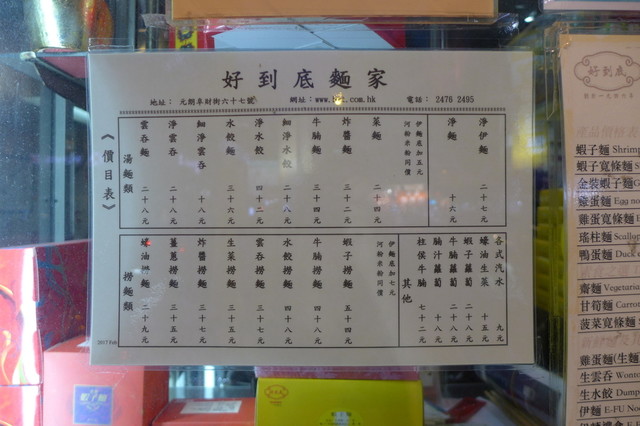 好到底麵家
地址： 元朗阜財街六十七號
網址：www.
.com.hk
電話： 2476 2495
《價目表》
湯麵類
雲吞麵 二十八元
淨雲吞 二十八元
細淨雲吞 十八元
水餃麵 三十六元
淨水餃 四十二元
細淨水餃 二十八元
牛腩麵 三十四元
炸醬麵 三十二元
菜麵 二十四元
伊麵底加五元
河粉米粉同價
淨麵 十六元
淨伊麵 二十七元
撈麵類
蠔油撈麵 二十九元
薑蔥撈麵 三十五元
炸醬撈麵 三十七元
生菜撈麵 三十五元
雲吞撈麵 三十七元
水餃撈麵 四十八元
牛腩撈麵 四十八元
蝦子撈麵 五十四元
伊麵底加七元
河粉米粉同價
其他
柱侯牛腩 七十二元
腩汁蘿蔔 十八元
牛腩蘿蔔 二十八元
蝦子蘿蔔 二十元
蠔油生菜 十五元
各式汽水 九元
2017 Feb
好到底
產品價格表
蝦子麵 Shrimp
蝦子寬條麵
金裝蝦子麵
雞蛋麵 Egg no
雞蛋寬條麵
瑤柱麵 Scallop
鴨蛋麵 Duck e
齋麵 Vegetaria
甘筍麵 Carrot
菠菜寬條麵
雞蛋麵(生麵)
生雲吞 Wonto
生水餃 Dump
伊麵 E-FU Noo